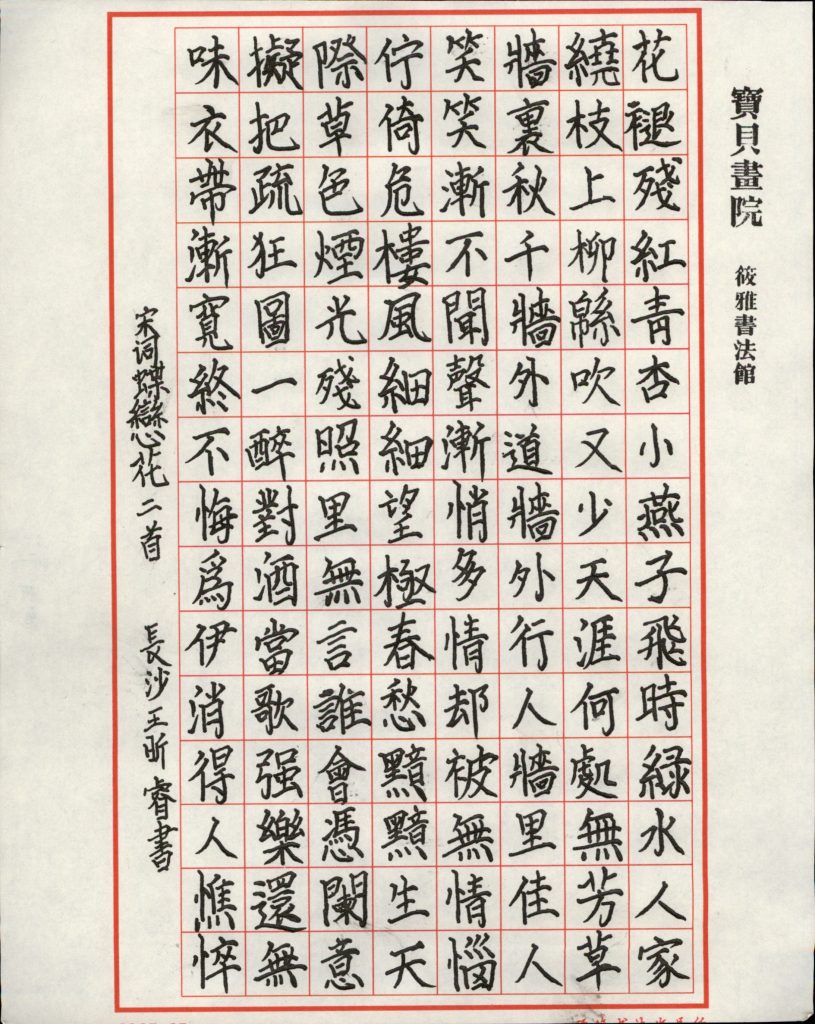 寶貝畫院 筱雅書法館
花褪殘紅青杏小燕子飛時緑水人家
繞枝上柳緜吹又少天涯何處無芳草
牆裏秋千牆外道牆外行人牆里佳人
笑笑漸不聞聲漸悄多情却被無情惱
佇倚危樓風細細望極春愁黯黯生天
際草色煙光殘照里無言誰會憑闌意
擬把疏狂圖一醉對酒當歌强樂還無
味衣帶漸寬終不悔爲伊消得人憔悴
宋词蝶戀花二首 長沙王昕睿書